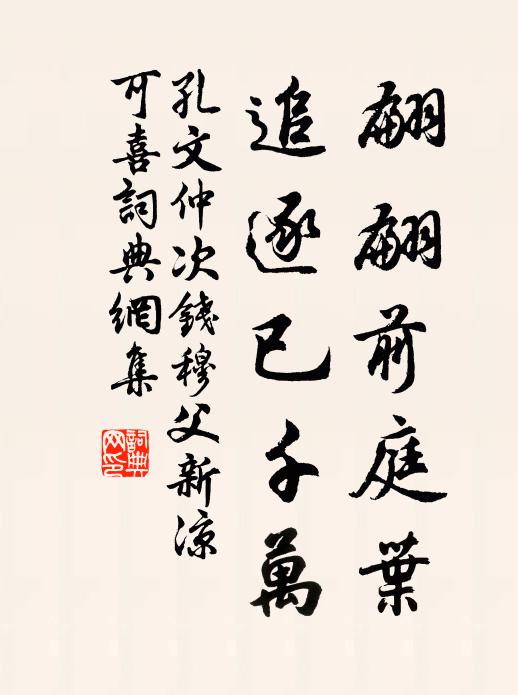 翩翩前庭葉
追逐已千萬
孔文仲次錢穆父新涼
可喜詞典網集
詞典
网印